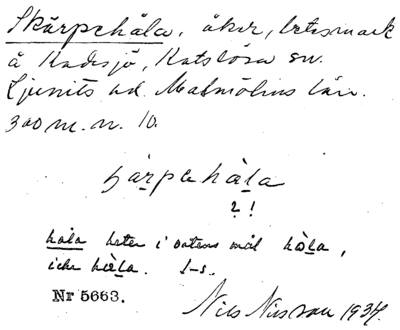 Skärpehåla, åker, betesmark
å Kadesjö, Katslösa sn.
Ljunits hd. Malmöhus län.
300 m. n. 10.
hå̱la
2!
håla heter i ortens mål hò̱la,
icke hà̱la. I-s.
Nr 5663.
Nils Nilsson 1934.